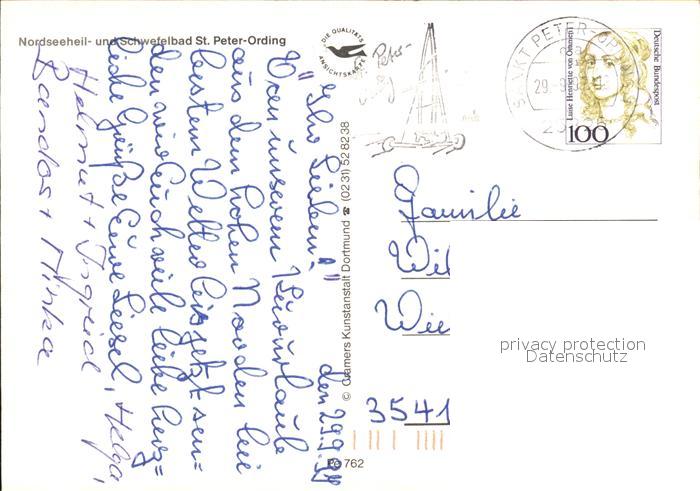 Nordseeheil- und Schwefelbad St. Peter-Ording
DIE QUALITÄTS
ANSICHTSKARTE
St. Peter-
SANKT PETER-ORDING
29.-9.
Luise Henriette von Oranien
Deutsche Bundespost
100
© Cramers Kunstanstalt Dortmund ☎ (0231) 528238
Po 762
den 29.9.94
"Ihr Lieben!"
Von unserem Kurzurlaub
aus dem hohen Norden bei
bestem Wetter bis jetzt sen=
den wir Euch viele liebe Herz=
liche Grüße Eure Liesel, Helga,
Helmut + Ingrid
Sandor + Minka
Familie
Wil
Wie
3541
privacy protection
Datenschutz